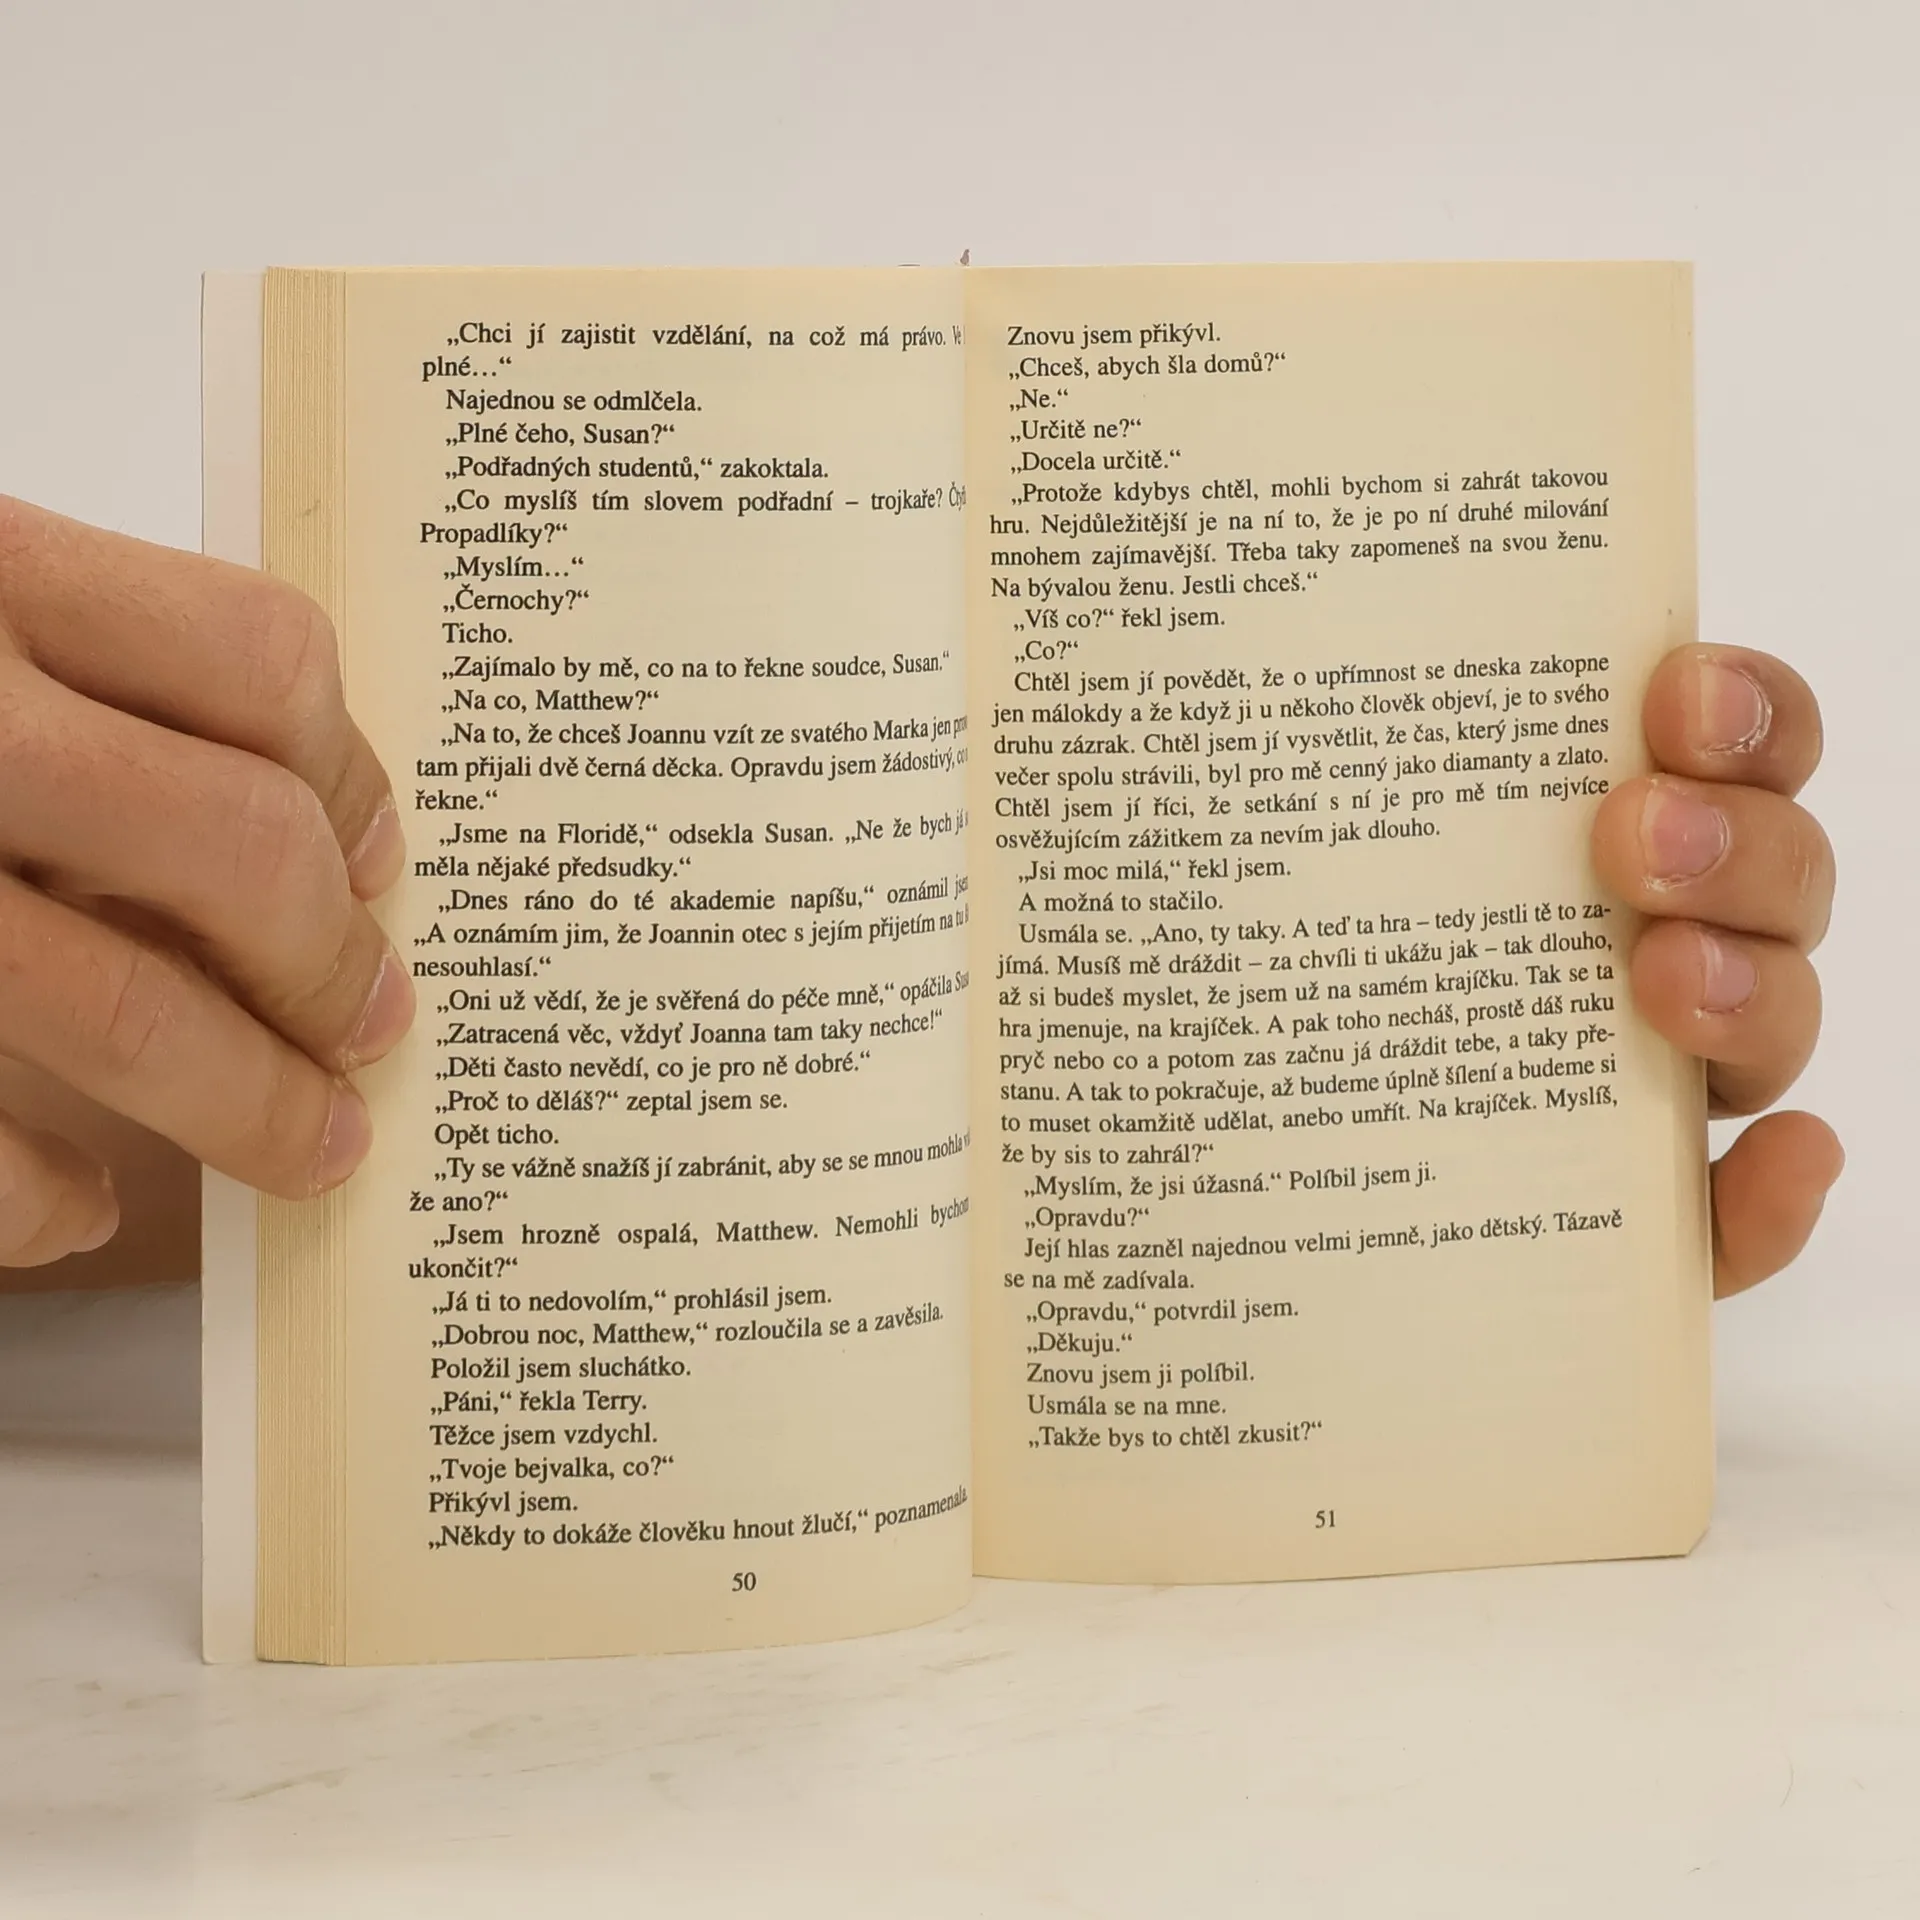 „Chci jí zajistit vzdělání, na což má právo. Ve
plné…“
Najednou se odmlčela.
„Plné čeho, Susan?“
„Podřadných studentů,“ zakoktala.
„Co myslíš tím slovem podřadní – trojkaře?
Propadlíky?“
„Myslím…“
„Černochy?“
Ticho.
„Zajímalo by mě, co na to řekne soudce, Susan.“
„Na co, Matthew?“
„Na to, že chceš Joannu vzít ze svatého Marka jen
tam přijali dvě černá děcka. Opravdu jsem žádostivý,
řekne.“
„Jsme na Floridě,“ odsekla Susan. „Ne že bych já
měla nějaké předsudky.“
„Dnes ráno do té akademie napíšu,“ oznámil
„A oznámím jim, že Joannin otec s jejím přijetím na tu
nesouhlasí.“
„Oni už vědí, že je svěřená do péče mně,“ opáčila
„Zatracená věc, vždyť Joanna tam taky nechce!“
„Děti často nevědí, co je pro ně dobré.“
„Proč to děláš?“ zeptal jsem se.
Opět ticho.
„Ty se vážně snažíš jí zabránit, aby se se mnou mohla
že ano?“
„Jsem hrozně ospalá, Matthew. Nemohli bychom
ukončit?“
„Já ti to nedovolím,“ prohlásil jsem.
„Dobrou noc, Matthew,“ rozloučila se a zavěsila.
Položil jsem sluchátko.
„Páni,“ řekla Terry.
Těžce jsem vzdychl.
„Tvoje bejvalka, co?“
Přikývl jsem.
„Někdy to dokáže člověku hnout žlučí,“ poznamenala.
50
Znovu jsem přikývl.
„Chceš, abych šla domů?“
„Ne.“
„Určitě ne?“
„Docela určitě.“
„Protože kdybys chtěl, mohli bychom si zahrát takovou
hru. Nejdůležitější je na ní to, že je po ní druhé milování
mnohem zajímavější. Třeba taky zapomeneš na svou ženu.
Na bývalou ženu. Jestli chceš.“
„Víš co?“ řekl jsem.
„Co?“
Chtěl jsem jí povědět, že o upřímnost se dneska zakopne
jen málokdy a že když ji u někoho člověk objeví, je to svého
druhu zázrak. Chtěl jsem jí vysvětlit, že čas, který jsme dnes
večer spolu strávili, byl pro mě cenný jako diamanty a zlato.
Chtěl jsem jí říci, že setkání s ní je pro mě tím nejvíce
osvěžujícím zážitkem za nevím jak dlouho.
„Jsi moc milá,“ řekl jsem.
A možná to stačilo.
Usmála se. „Ano, ty taky. A teď ta hra – tedy jestli tě to za-
jímá. Musíš mě dráždit – za chvíli ti ukážu jak – tak dlouho,
až si budeš myslet, že jsem už na samém krajíčku. Tak se ta
hra jmenuje, na krajíček. A pak toho necháš, prostě dáš ruku
pryč nebo co a potom zas začnu já dráždit tebe, a taky pře-
stanu. A tak to pokračuje, až budeme úplně šílení a budeme si
to muset okamžitě udělat, anebo umřít. Na krajíček. Myslíš,
že by sis to zahrál?“
„Myslím, že jsi úžasná.“ Políbil jsem ji.
„Opravdu?“
Její hlas zazněl najednou velmi jemně, jako dětský. Tázavě
se na mě zadívala.
„Opravdu,“ potvrdil jsem.
„Děkuju.“
Znovu jsem ji políbil.
Usmála se na mne.
„Takže bys to chtěl zkusit?“
51